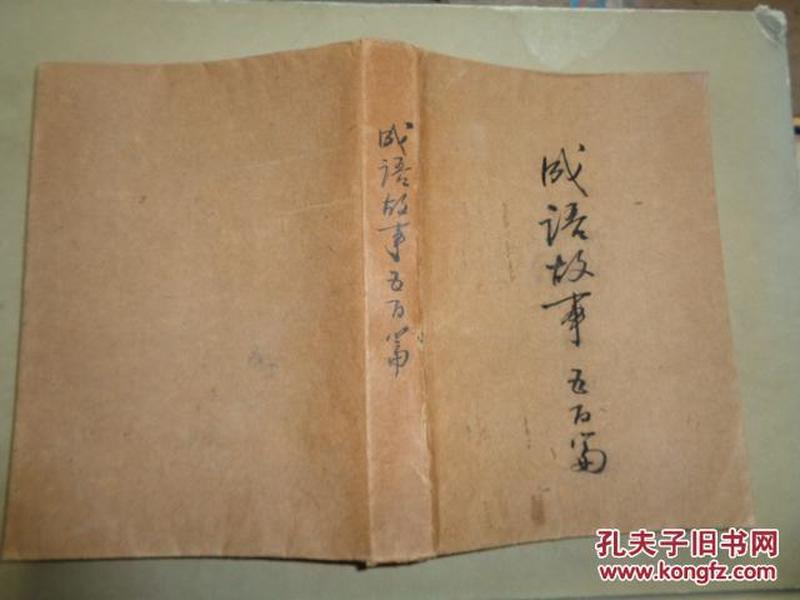 成语故事五百篇
成语故事五百篇
孔夫子旧书网
www.kongfz.com